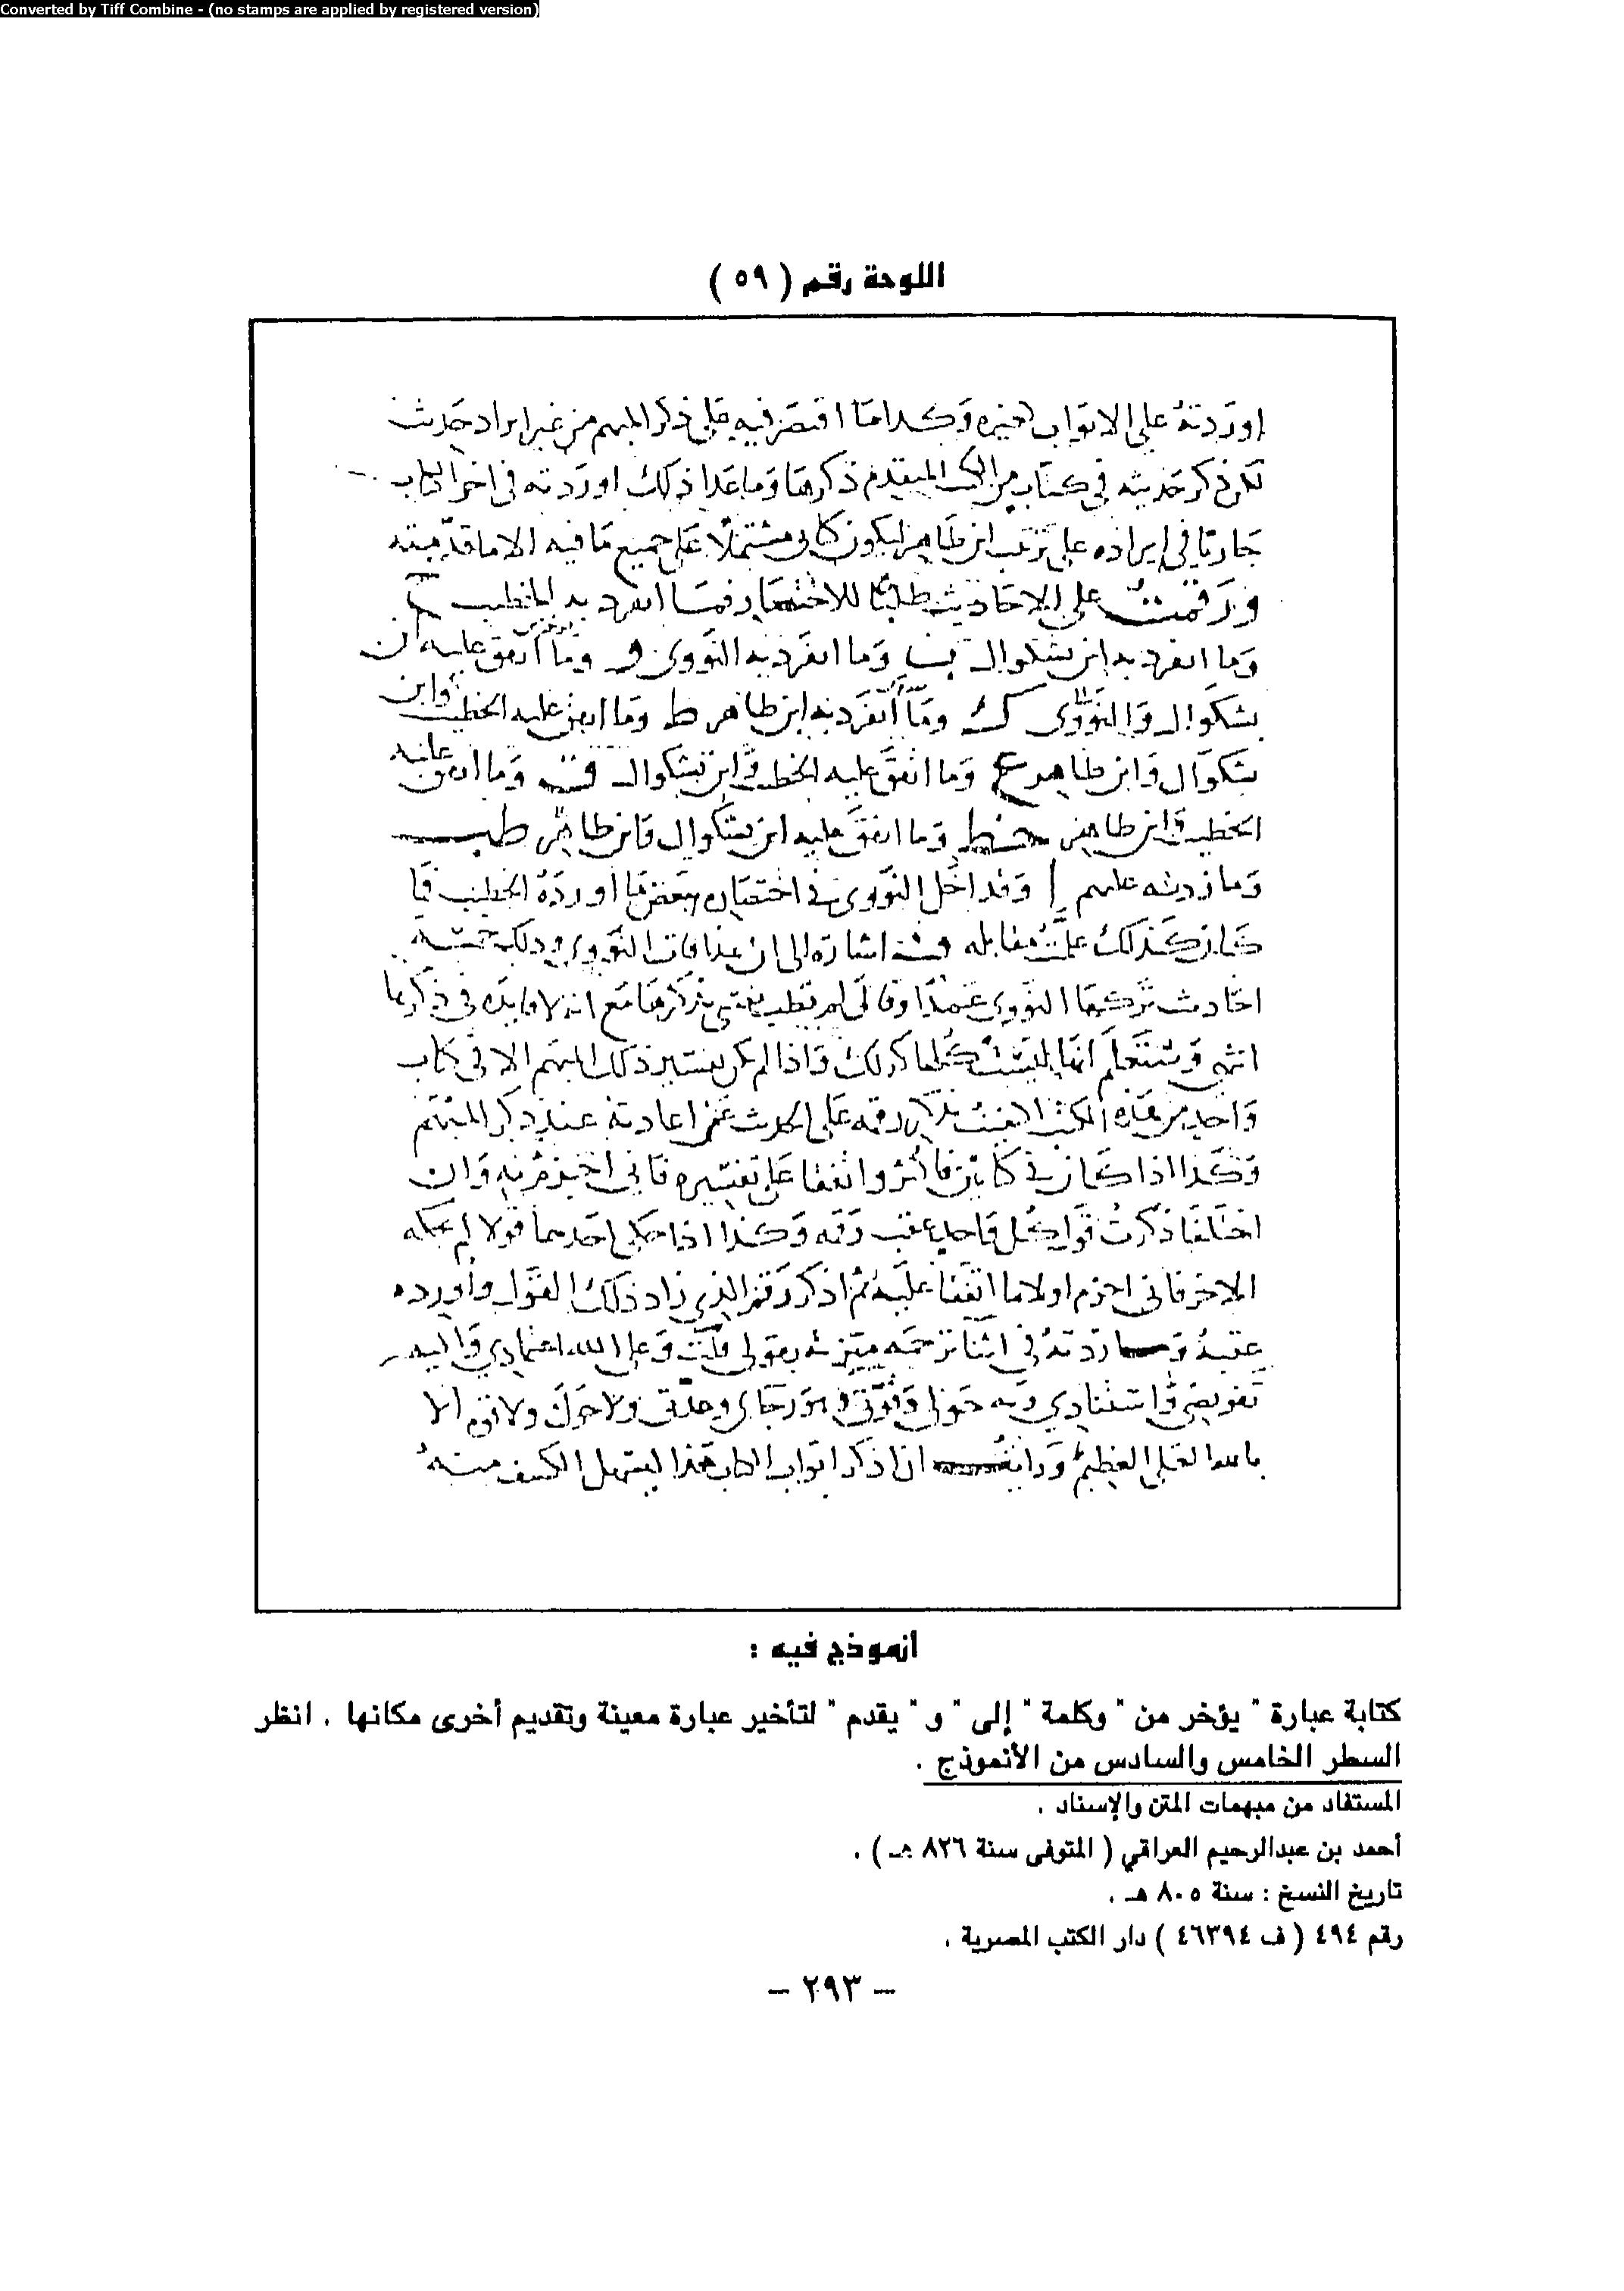 Converted by Tiff Combine - (no stamps are applied by registered version)
اللوحة رقم ( ٥٩ )
اوردته على الابواب اخيره وكذا ما اقتصر فيه على ذكر المبهم من غير ايراد حديث
لكن ذكر حديثه في كتاب من الكتب المتقدم ذكرها وما عدا ذلك اوردته في اخر الكتاب
جاريا في ايراده على ترتيب ابن طاهر ليكون كتابي مشتملا على جميع ما فيه الا ما قدمته
ورقمت على الاحاديث طلبا للاختصار فما انفرد به الخطيب خ
وما انفرد به ابن بشكوال ب وما انفرد به النووي و وما اتفق عليه ابن
بشكوال والنووي ك وما انفرد به ابن طاهر ط وما اتفق عليه الخطيب وابن
بشكوال وابن طاهر ع وما اتفق عليه الخطيب وابن بشكوال وما اتفق عليه
الخطيب وابن طاهر خط وما اتفق عليه ابن بشكوال وابن طاهر طب
وما زدته عليهم ا وقد اخل النووي في اختصاره ببعض ما اورده الخطيب فما
كان كذلك علمت مقابله اشارة الى ان هذا فات النووي وذلك خمسة
احاديث تركها النووي عمدا وقال لم تطب نفسي بذكرها مع انه لا فايدة في ذكرها
انتهى وستعلم انها ليست كلها كذلك واذا لم يكن تفسير ذلك المبهم الا في كتاب
واحد من هذه الكتب اكتفيت بذكر رقمه على الحديث عن اعادته عند ذكر المبهم
وكذا اذا كان في كتابين فاكثر واتفقا على تفسيره فاني اجزم به وان
اختلفا ذكرت قول كل واحد عقب رقمه وكذا اذا حكى احدهما قولا لم يحكه
الاخر فاني اجزم اولا بما اتفقا عليه ثم اذكر رقم الذي زاد ذلك القول واورده
عقبه وما زدته في اثنا ترجمه ميزته بقولي قلت وعلى الله اعتمادي واليه
تفويضي واستنادي وبه حولي وقوتي وهو رجاي وعدتي ولا حول ولا قوة الا
بالله العلي العظيم ورايت ان اذكر ابواب الكتاب هنا ليسهل الكشف منه
أنموذج فيه :
كتابة عبارة " يؤخر من " وكلمة " إلى " و " يقدم " لتأخير عبارة معينة وتقديم أخرى مكانها . انظر
السطر الخامس والسادس من الأنموذج .
المستفاد من مبهمات المتن والإسناد .
أحمد بن عبدالرحيم العراقي ( المتوفى سنة ٨٢٦ هـ ) .
تاريخ النسخ : سنة ٨٠٥ هـ .
رقم ٤٩٤ ( ف ٤٦٣٩٤ ) دار الكتب المصرية .
– ٢٩٣ –